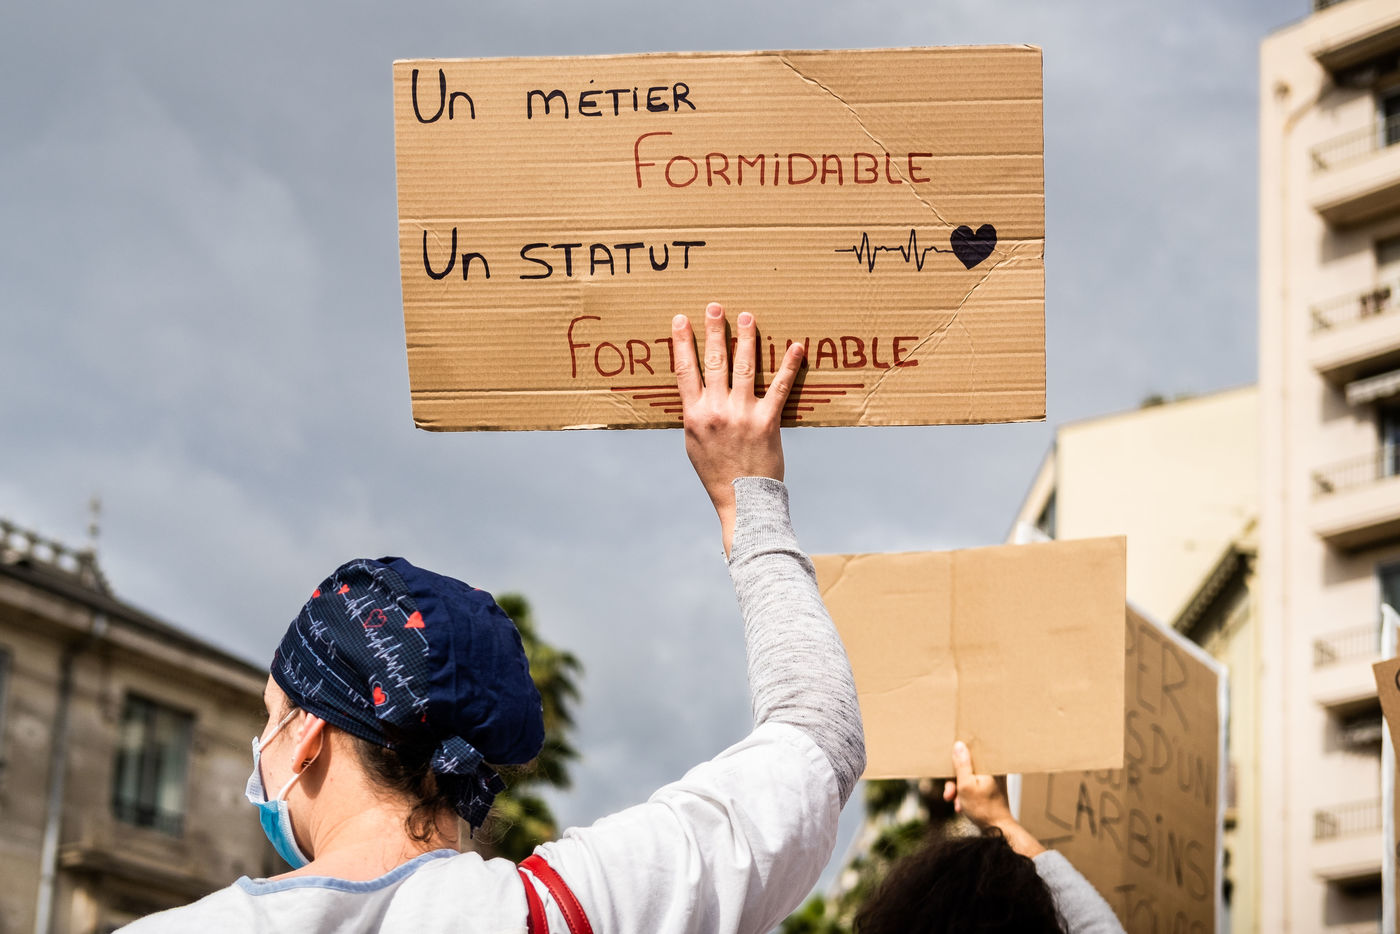 Un MÉTIER
FORMIDABLE
Un STATUT
FORT MINABLE
D'UN
LARBINS